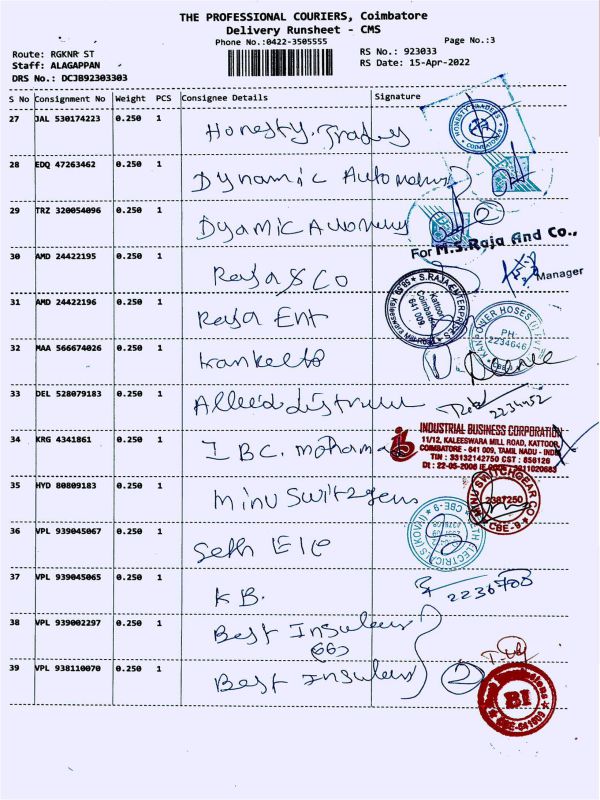 THE PROFESSIONAL COURIERS, Coimbatore
Delivery Runsheet - CMS
Phone No.:0422-3505555
Page No.:3
Route: RGKNR ST
Staff: ALAGAPPAN
DRS No.: DCJB92303303
RS No.: 923033
RS Date: 15-Apr-2022
S No Consignment No Weight PCS Consignee Details Signature
27 JAL 530174223 0.250 1 Honesty. Traders
HONESTY TRADERS COIMBATORE
28 EDQ 47263462 0.250 1 Dynamic
29 TRZ 320054096 0.250 1 Dyamic 2
For M.S.Raja And Co.,
30 AMD 24422195 0.250 1 Raja & Co
Manager
31 AMD 24422196 0.250 1 Raja Ent
S.RAJA ENTERPRISES Kattoor Coimbatore 641 009
KANPOWER HOSES (I) PVT PH: 2234646 CBE
32 MAA 566674026 0.250 1
33 DEL 528079183 0.250 1 2234952
34 KRG 4341861 0.250 1 IBC.
INDUSTRIAL BUSINESS CORPORATION
11/12, KALEESWARA MILL ROAD, KATTOOR,
COIMBATORE - 641 009, TAMIL NADU - INDIA
TIN : 33132142750 CST : 856126
35 HYD 80809183 0.250 1 Minu Switzgears
MINU SWITCHGEAR CO 2387250 CBE-9
36 VPL 939045067 0.250 1 Seth Ele
SETH ELECTRICALS (KOVAI) CBE-9
37 VPL 939045065 0.250 1 KB.
2236708
38 VPL 939002297 0.250 1 Best
(66)
39 VPL 938110070 0.250 1 Best 2
BI